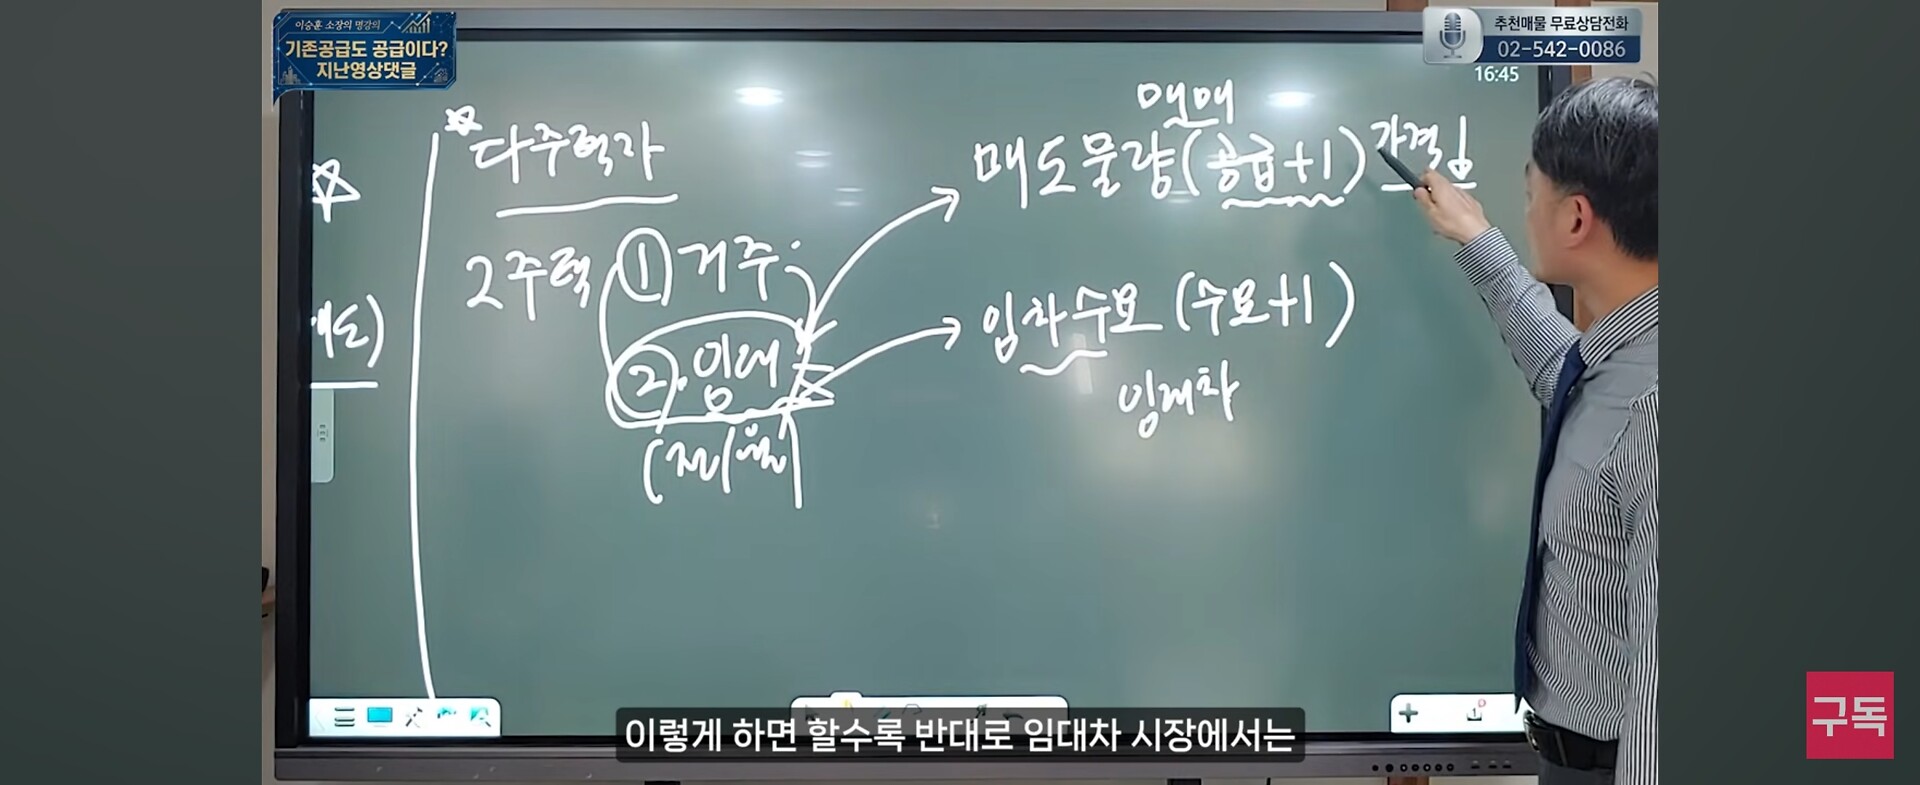 이승훈 소장의 명강의
기존공급도 공급이다?
지난영상댓글
추천매물 무료상담전화
02-542-0086
16:45
다주택자
2주택 ① 거주
② 임대
(전/월)
매매
매도물량 (공급+1) 가격↓
임차수요 (수요+1)
임대차
이렇게 하면 할수록 반대로 임대차 시장에서는
구독